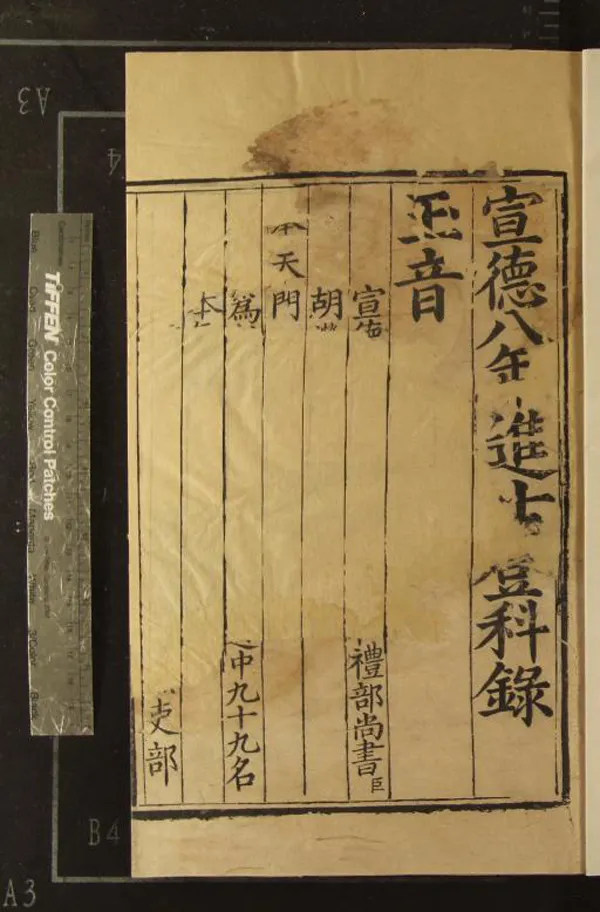 宣德八年進士登科錄
玉音
宣德 禮部尚書臣
胡
奉天門
為 中九十九名
本
吏部
A3
4
B4
A3
TIFFEN Color Control Patches